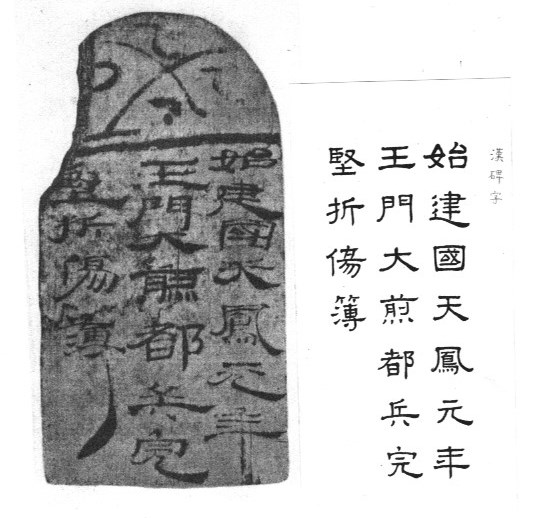 漢碑字
始建國天鳳元年
王門大煎都兵完
堅折傷簿
始建國天鳳元年
王門大煎都兵完
堅折傷簿